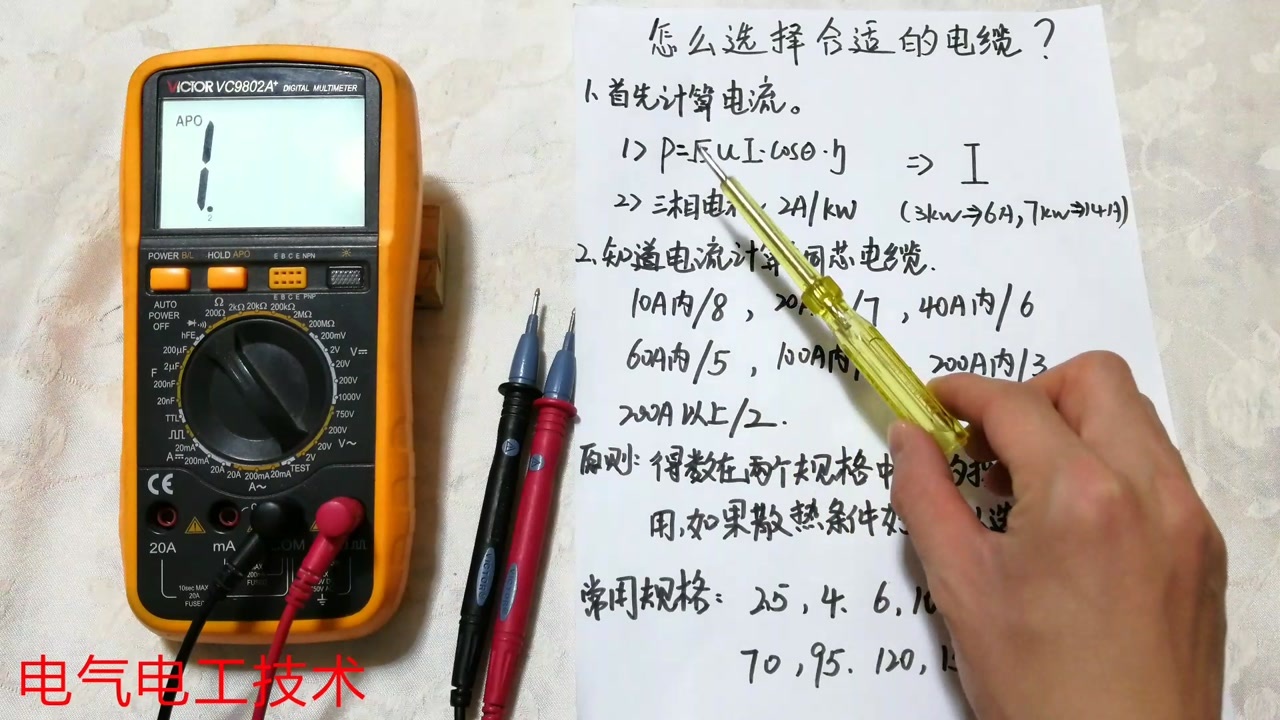 VICTOR VC9802A+ DIGITAL MULTIMETER
APO
1.
2
POWER B/L HOLD APO E B C E NPN
E B C E PNP
AUTO POWER OFF
Ω
200Ω 2kΩ 20kΩ 200kΩ 2MΩ 200MΩ
hFE
200mV
2V
20V
200V
1000V
V⎓
750V
200V
20V
2V
V~
TEST
F
200μF
2μF
200nF
20nF
TTL
A⎓
20mA 200mA 20A 20A 200mA 20mA
A~
CE
20A mA COM
10sec MAX
20A
FUSED
MAX
电气电工技术
怎么选择合适的电缆?
1、首先计算电流。
1> P=√ uI·cosθ·η => I
2> 三相电 2A/kW (3kW⇒6A,7kW⇒14A)
2、知道电流计算 同芯电缆.
10A内/8 , 20A /7 , 40A内/6
60A内/5 , 100A内/ 200A内/3
200A以上/2.
原则: 得数在两个规格中
用,如果散热条件好
常用规格: 2.5, 4. 6, 10
70, 95. 120,